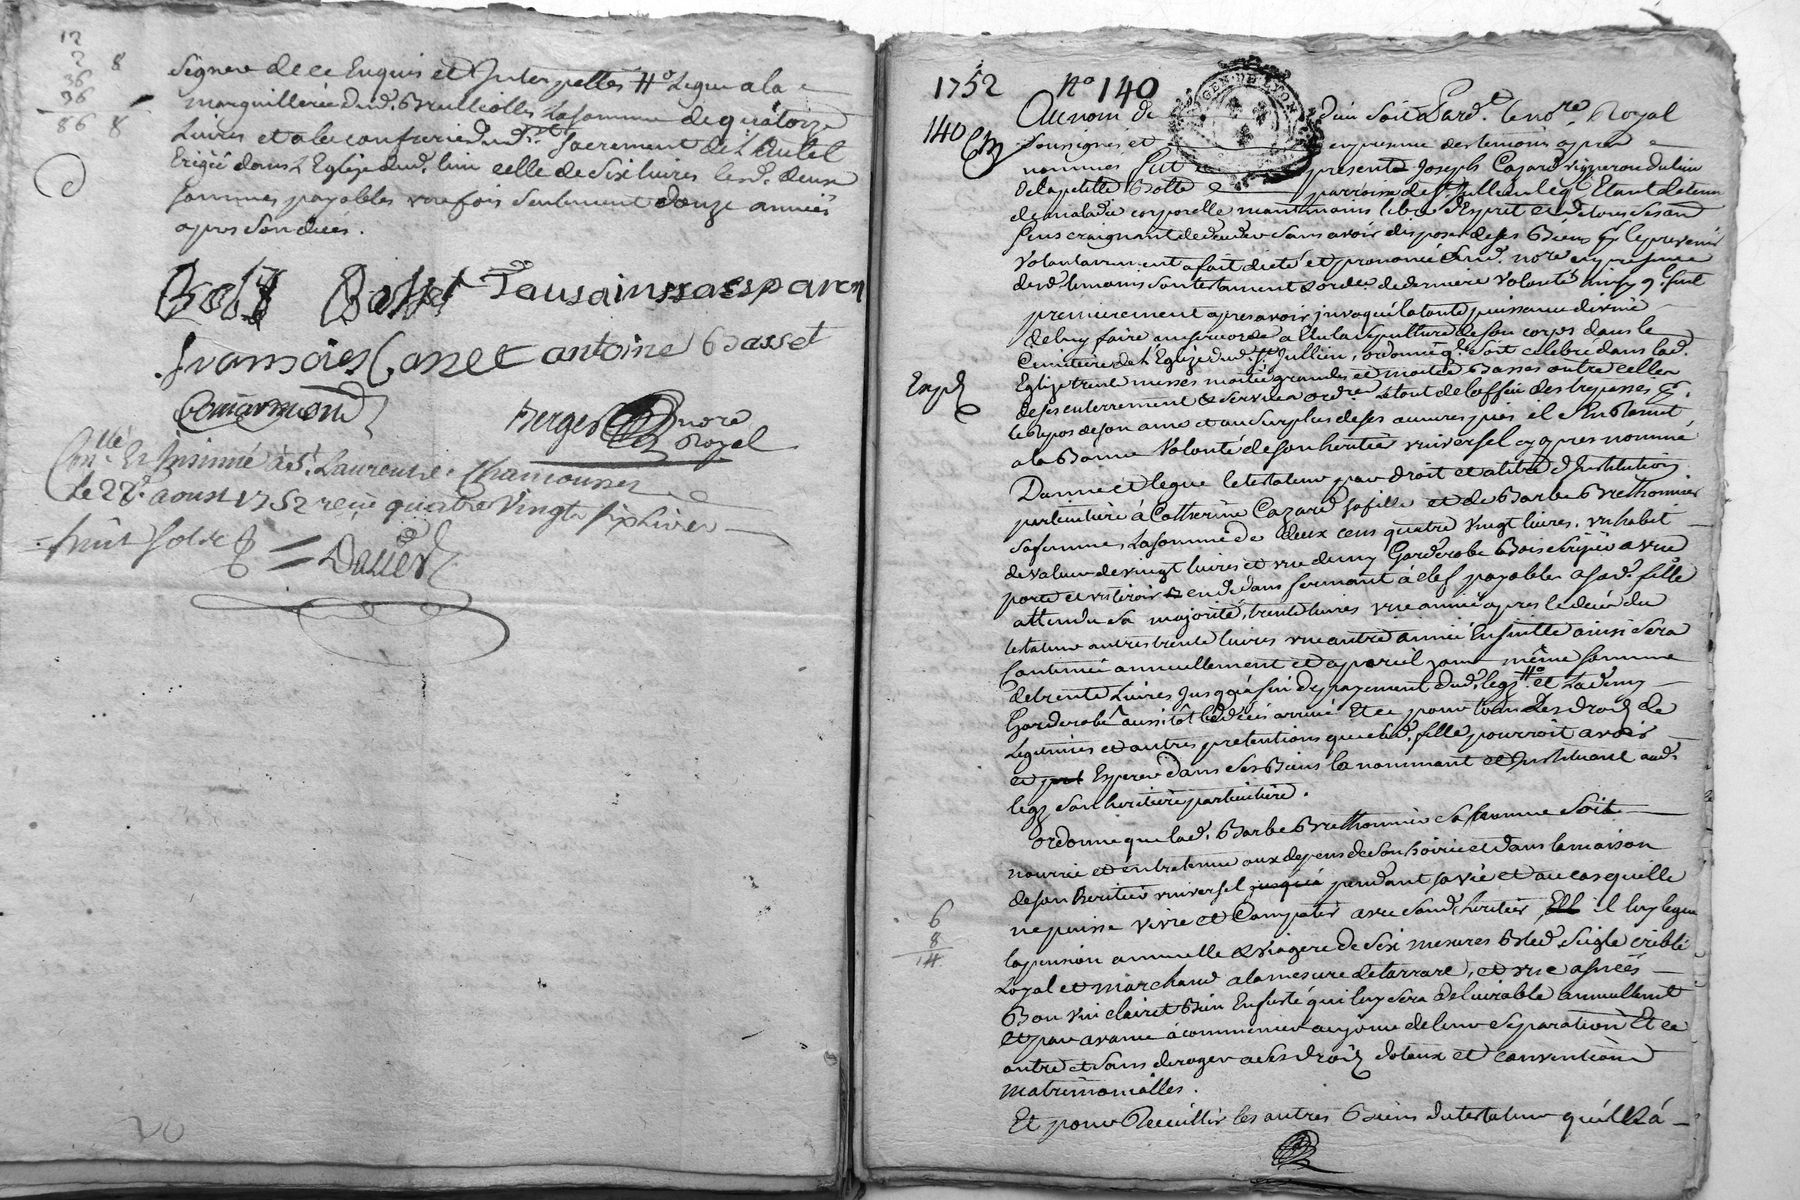 12
2 8
36
36
86 8
Signer de ce Enquis et Interpellés # Legue a la
marguillerie dud. Brulliolles La somme de quatorze
Livres et a la confrerie du st. Sacrement de L'autel
Erigée dans L'Eglize dud. lieu celle de Six livres lesd. deux
sommes payables une fois seulement douze années
apres son decés.
Basset Toussainssacsparon
francoies antoine Basset
Berger nore
Royal
Con.lé Et Insinué à St. Laurent de Chamousset
le 22e. aoust 1752 reçu quatre vingt six Livres
huit sols
20
1752 no 140
140
GEN. DE LYON
Au nom de Dieu Soit Pard.t le no.re Royal
Soussigné et en presence des temoins apres
nommés fut present Joseph Cazard vigneron du lieu
de la petite Botte parroisse de St Jullien Etant detenu
de maladie corporelle neantmoins libre d'Esprit et de tous ses
sens craignant de deceder sans avoir disposé de ses Biens
volontairement a fait dicté et prononcé aud. nore en presence
desd. temoins son testament & ordre de derniere volonté ainsy q.l suit
premierement apres avoir invoqué la toute puissance divine
de luy faire misericorde a Elu la sepulture de son corps dans le
Cimitiere de L'Eglize dud. St. Jullien, ordonne q.l soit celebré dans lad.
Eglize trente messes moitié grandes et moitié Basses outre celles
Exp
de ses enterrement & service ord.re le tout de l'office des trepassés
le Repos de son ame et au surplus de ses œuvres pies il s'En Remet
a la Bonne volonté de son heritier universel cy apres nommé
Donne et legue le testateur par droit et a titre d'Institution
particuliere à Catherine Cazard sa fille et de Barbe Brethonnier
sa femme, La somme de deux cens quatre vingt livres, un habit
de valeur de vingt livres et une demy Garderobe Bois avec
porte et un tiroir en dedans fermant à clef payables a sad. fille
attendu sa majorité, trente livres une année apres le decés du
testateur autres trente livres une autre année Ensuitte ainsi sera
Continué annuellement et a pareil jour même somme
de trente Livres jusqu'à fin de payement dud. legz # et La demy
Garderobe aussitôt led. decés arrivé Et ce pour tous Les droits de
Legitimes et autres pretentions que lad. fille pourroit avoir
et Esperer dans ses Biens la nommant et Instituant aud.
legz son heritiere particuliere.
ordonne que lad. Barbe Brethonnier sa femme soit
nourrie et entretenue aux depens de son hoirie et dans la maison
de son heritier universel jusqu'à pendant sa vie et au cas qu'elle
ne puisse vivre et Compatir avec sond. heritier, Ell il luy legue
6
8
14
la pension annuelle & viagere de six mesures Bled seigle criblé
Loyal et marchand a la mesure de tarrare, et une asnée
Bon vin clairet Bien Enfusté qui luy sera delivrable annuellemt.
et par avance à commencer au jour de leur separation Et ce
outre et sans deroger a ses droits dotaux et conventions
matrimonialles.
Et pour Recuillir les autres Biens du testateur qu'il n'a